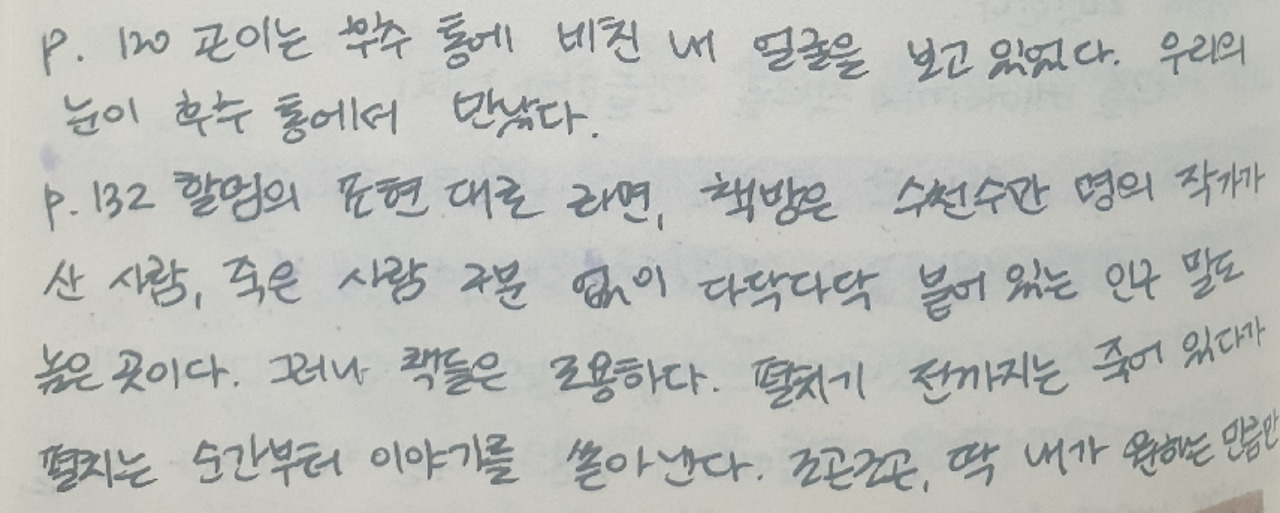 p. 120 곤이는 후추 통에 비친 내 얼굴을 보고 있었다. 우리의
눈이 후추 통에서 만났다.
p. 132 할멈의 표현 대로 라면, 책방은 수천수만 명의 작가가
산 사람, 죽은 사람 구분 없이 다닥다닥 붙어 있는 인구 말도
높은 곳이다. 그러나 책들은 조용하다. 펼치기 전까지는 죽어 있다가
펼치는 순간부터 이야기를 쏟아 낸다. 조곤조곤, 딱 내가 원하는 만큼만